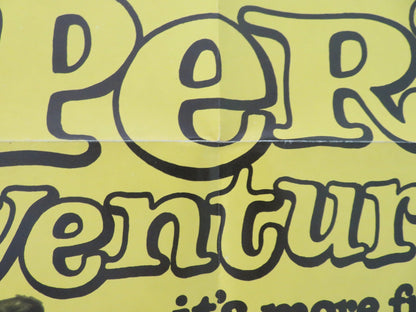 PeR
ventur
it's more f